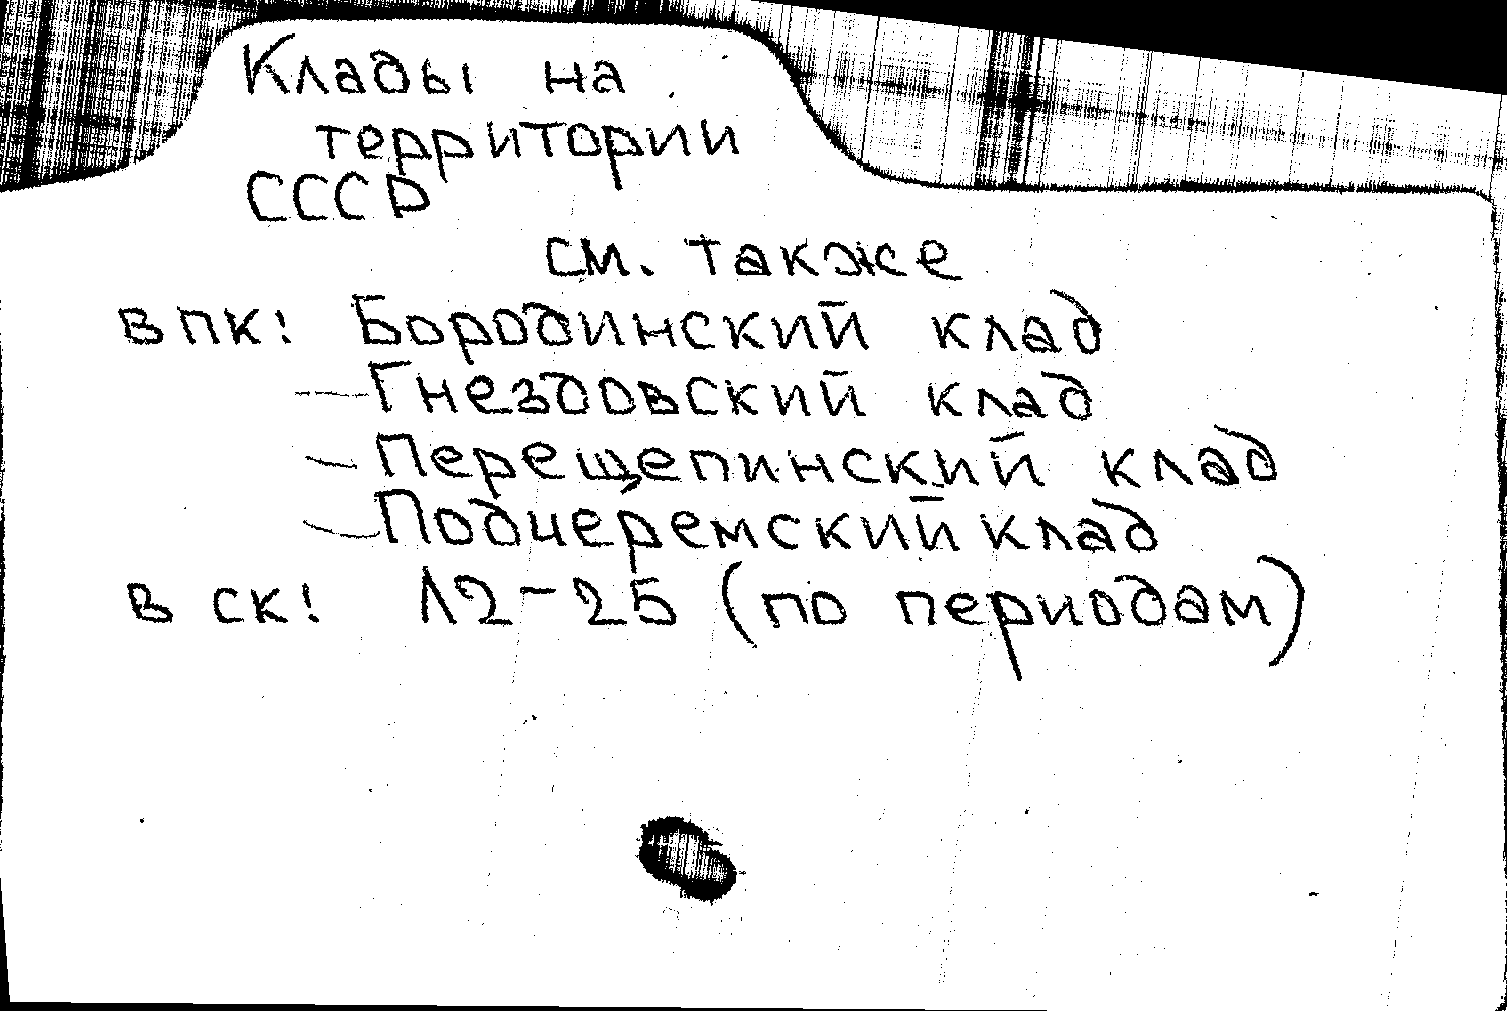 Клады на
территории
СССР
см. также
в ПК: Бородинский клад
— Гнездовский клад
— Перещепинский клад
— Подчеремский клад
в СК: Л2-25 (по периодам)